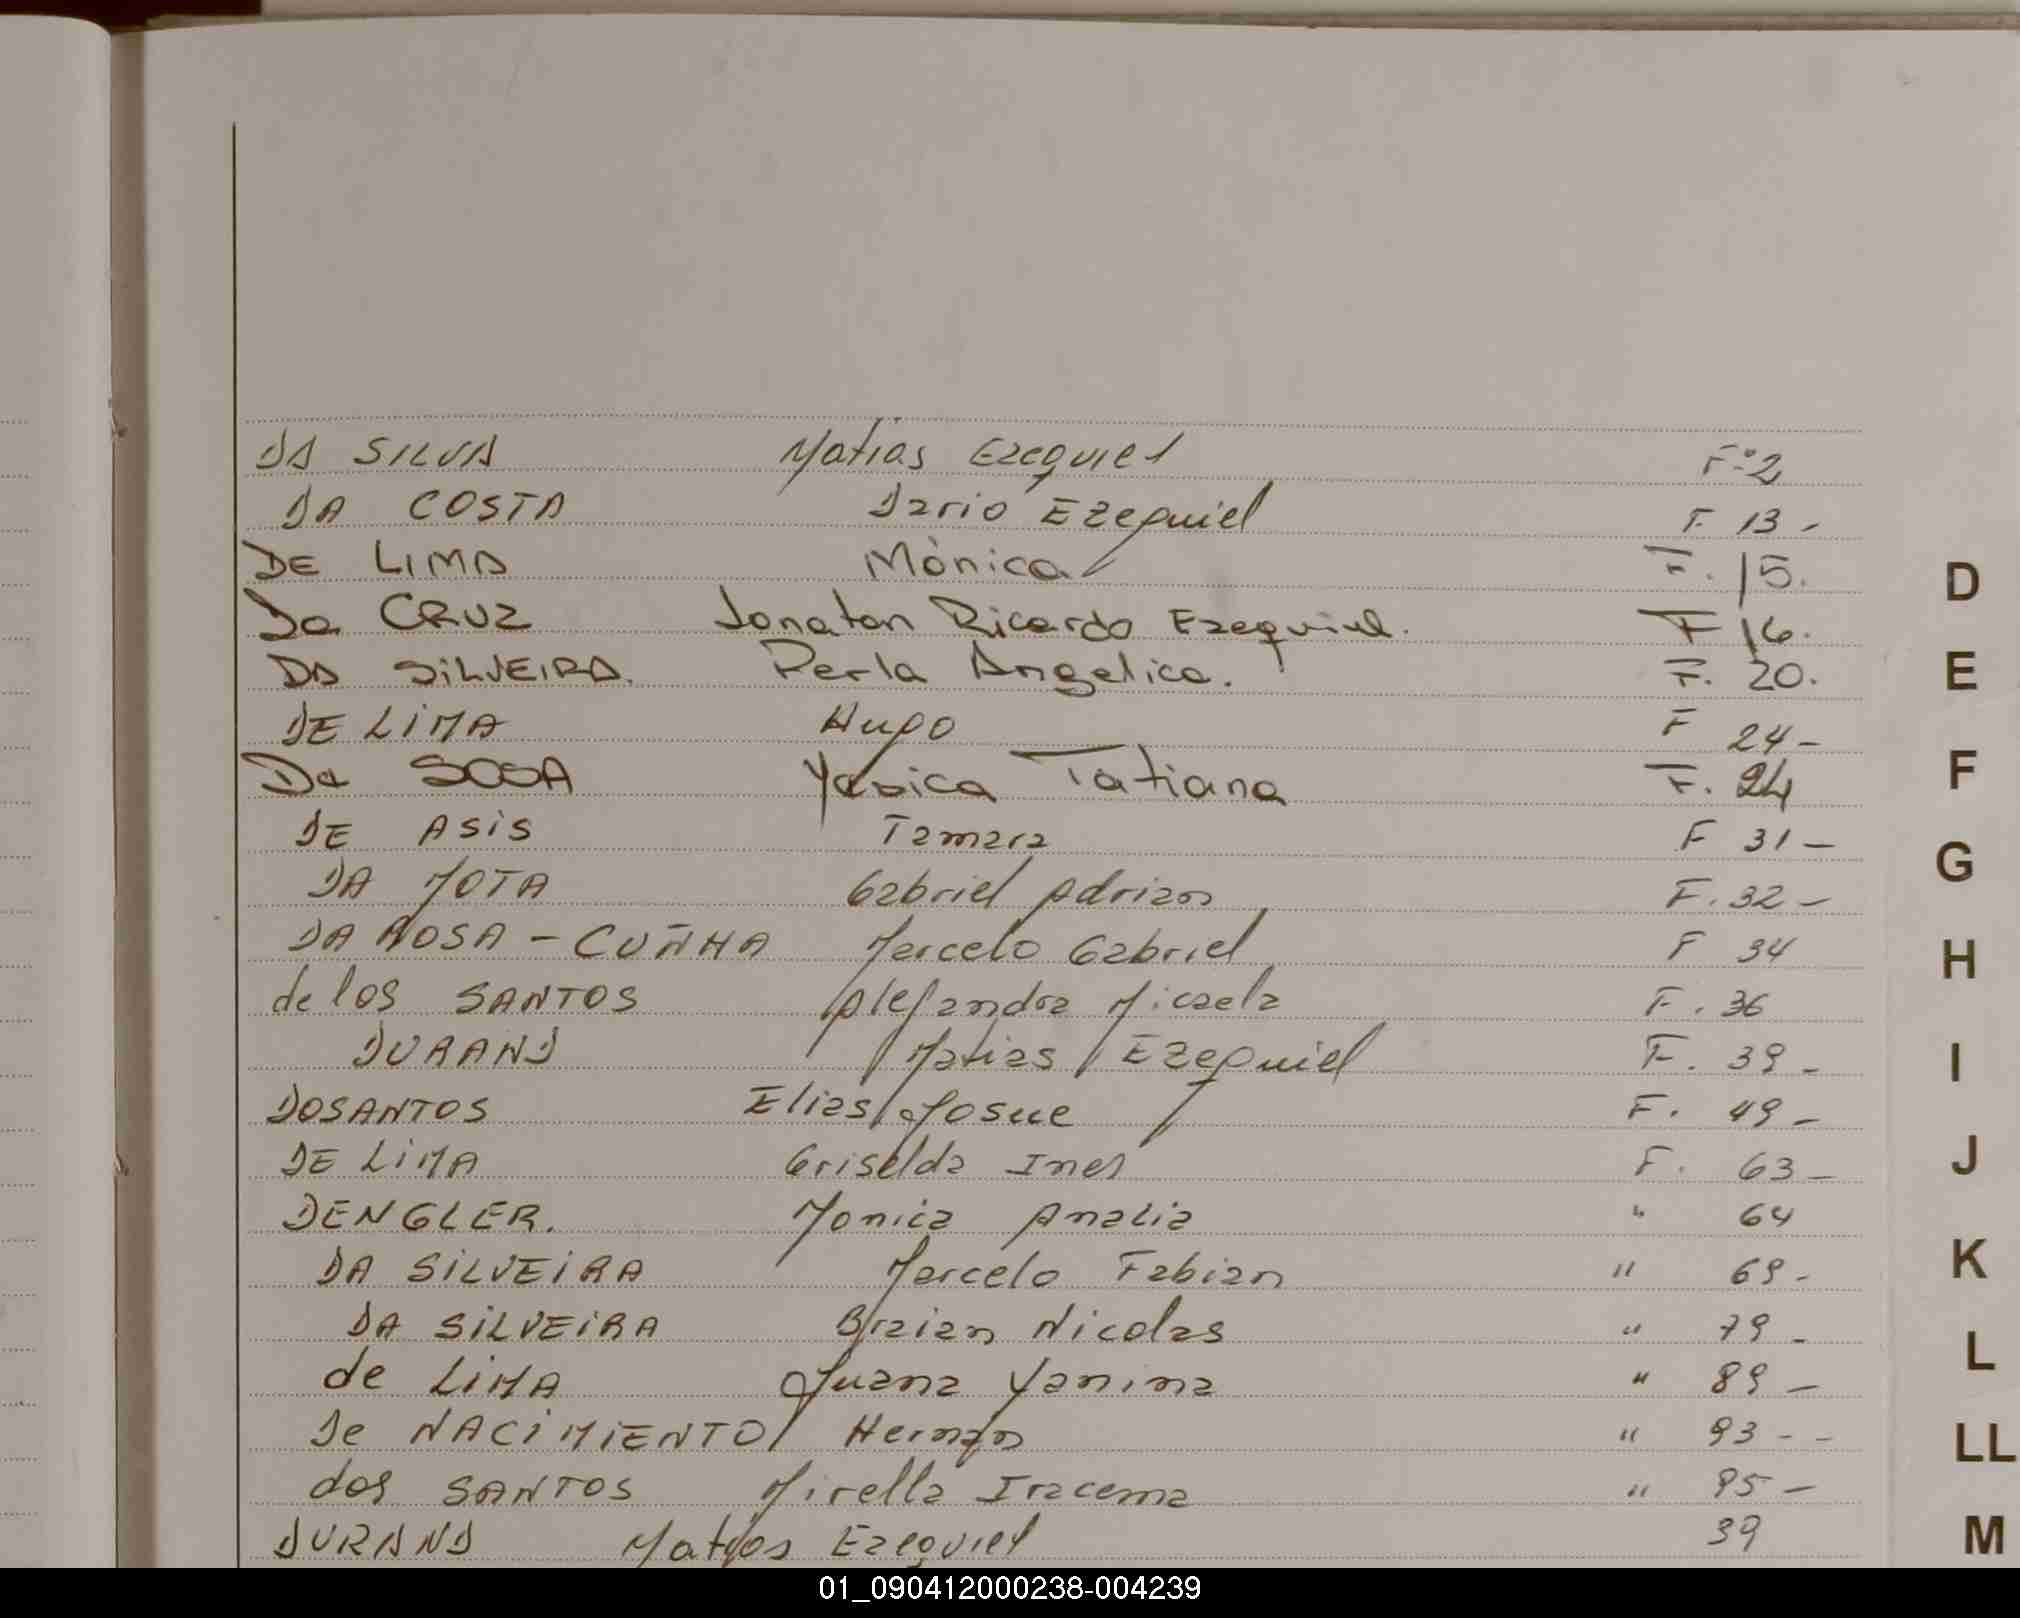 DA SILVA Matias Ezequiel Fº 2
DA COSTA Dario Ezequiel F. 13 -
DE LIMA Mònica F. 15.
Da CRUZ Jonatan Ricardo Ezequiel. F 16.
DA SiLVEIRA. Perla Angelica. F. 20.
DE LiMA Hugo F 24 -
Da SOSA Yesica Tatiana F. 24
DE ASiS Tamara F 31 -
DA MOTA Gabriel Adrian F. 32 -
DA ROSA - CUÑHA Marcelo Gabriel F 34
de los SANTOS Alejandra Micaela F. 36
DURAND Matias Ezequiel F. 39 -
DOSANTOS Elias Josue F. 49 -
DE LiMA Griselda Ines F. 63 -
DENGLER. Monica Analia " 64
DA SiLVEiRA Marcelo Fabian " 69 -
DA SiLVEiRA Braian Nicolas " 79 -
de LiMA Juana Yanina " 89 -
De NACiMiENTO Hernan " 93 - -
dos SANTOS Mirella Iracema " 95 -
DURAND Matias Ezequiel 39
D
E
F
G
H
I
J
K
L
LL
M
01_090412000238-004239